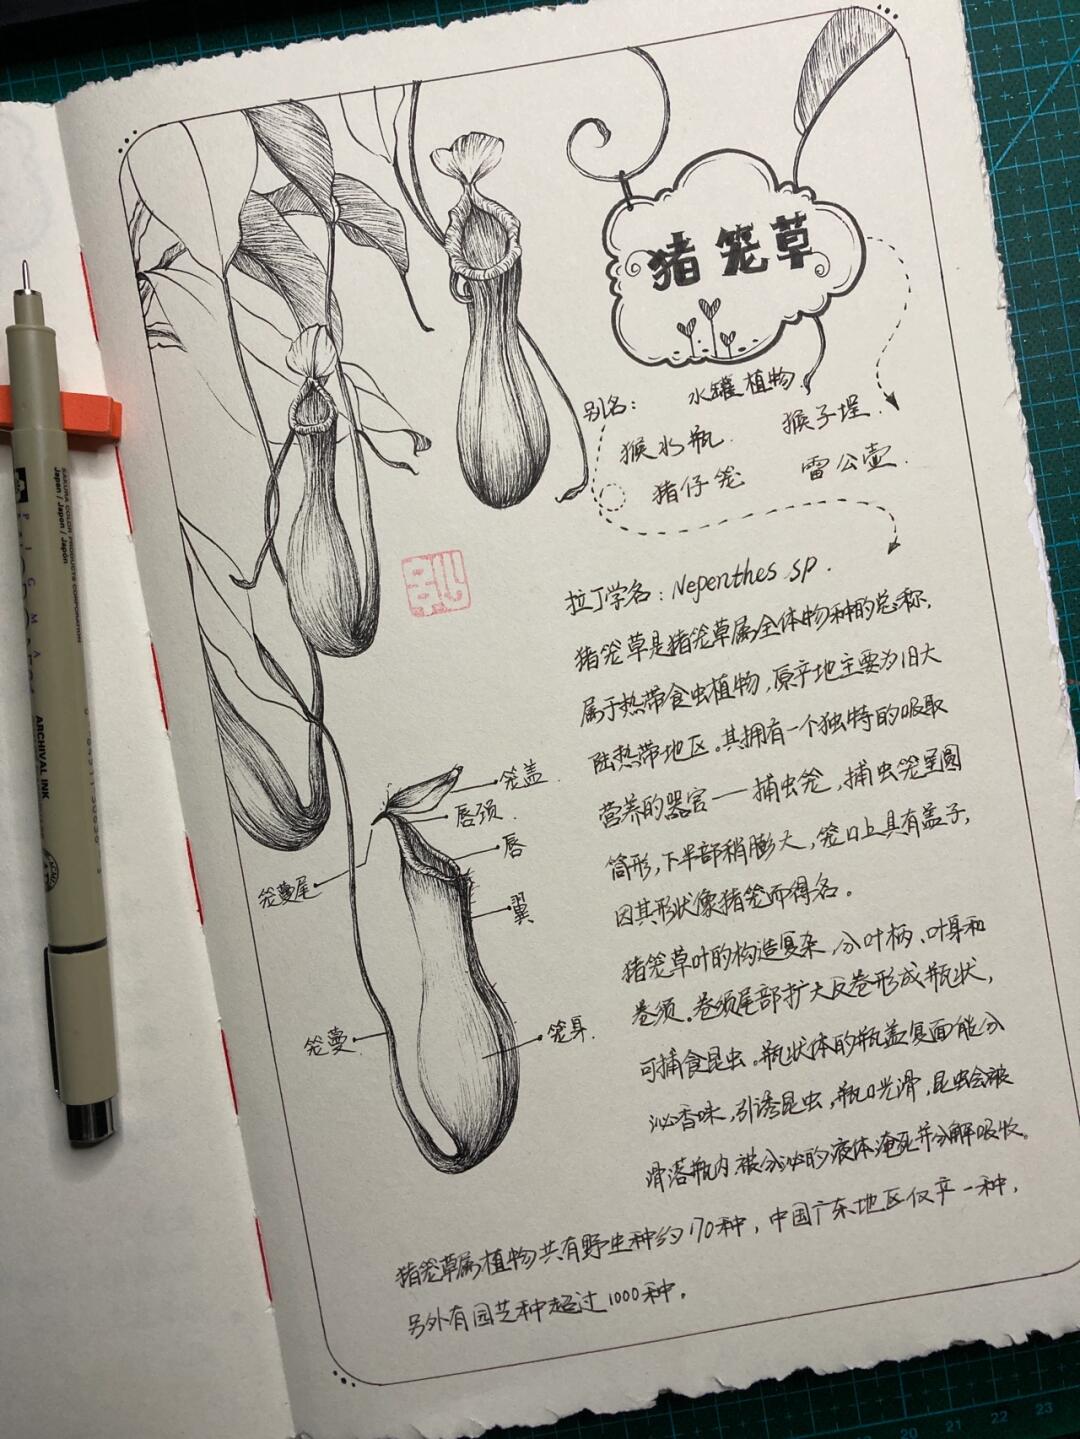 猪笼草
别名：
水罐植物
猴水瓶
猴子埕
猪仔笼
雷公壶
拉丁学名：Nepenthes sp.
猪笼草是猪笼草属全体物种的总称，
属于热带食虫植物，原产地主要为旧大
陆热带地区。其拥有一个独特的吸取
营养的器官——捕虫笼，捕虫笼呈圆
筒形，下半部稍膨大，笼口上具有盖子，
因其形状像猪笼而得名。
猪笼草叶的构造复杂，分叶柄、叶身和
卷须。卷须尾部扩大反卷形成瓶状，
可捕食昆虫。瓶状体的瓶盖复面能分
泌香味，引诱昆虫，瓶口光滑，昆虫会被
滑落瓶内，被分泌的液体淹死并分解吸收。
猪笼草属植物共有野生种约170种，中国广东地区仅产一种，
另外有园艺种超过1000种。
笼盖
唇颈
唇
笼蔓尾
翼
笼蔓
笼身
SAKURA COLOR PRODUCTS CORPORATION
Japan / Japon / Japón
PIGMA
ARCHIVAL INK
20
21
22
23